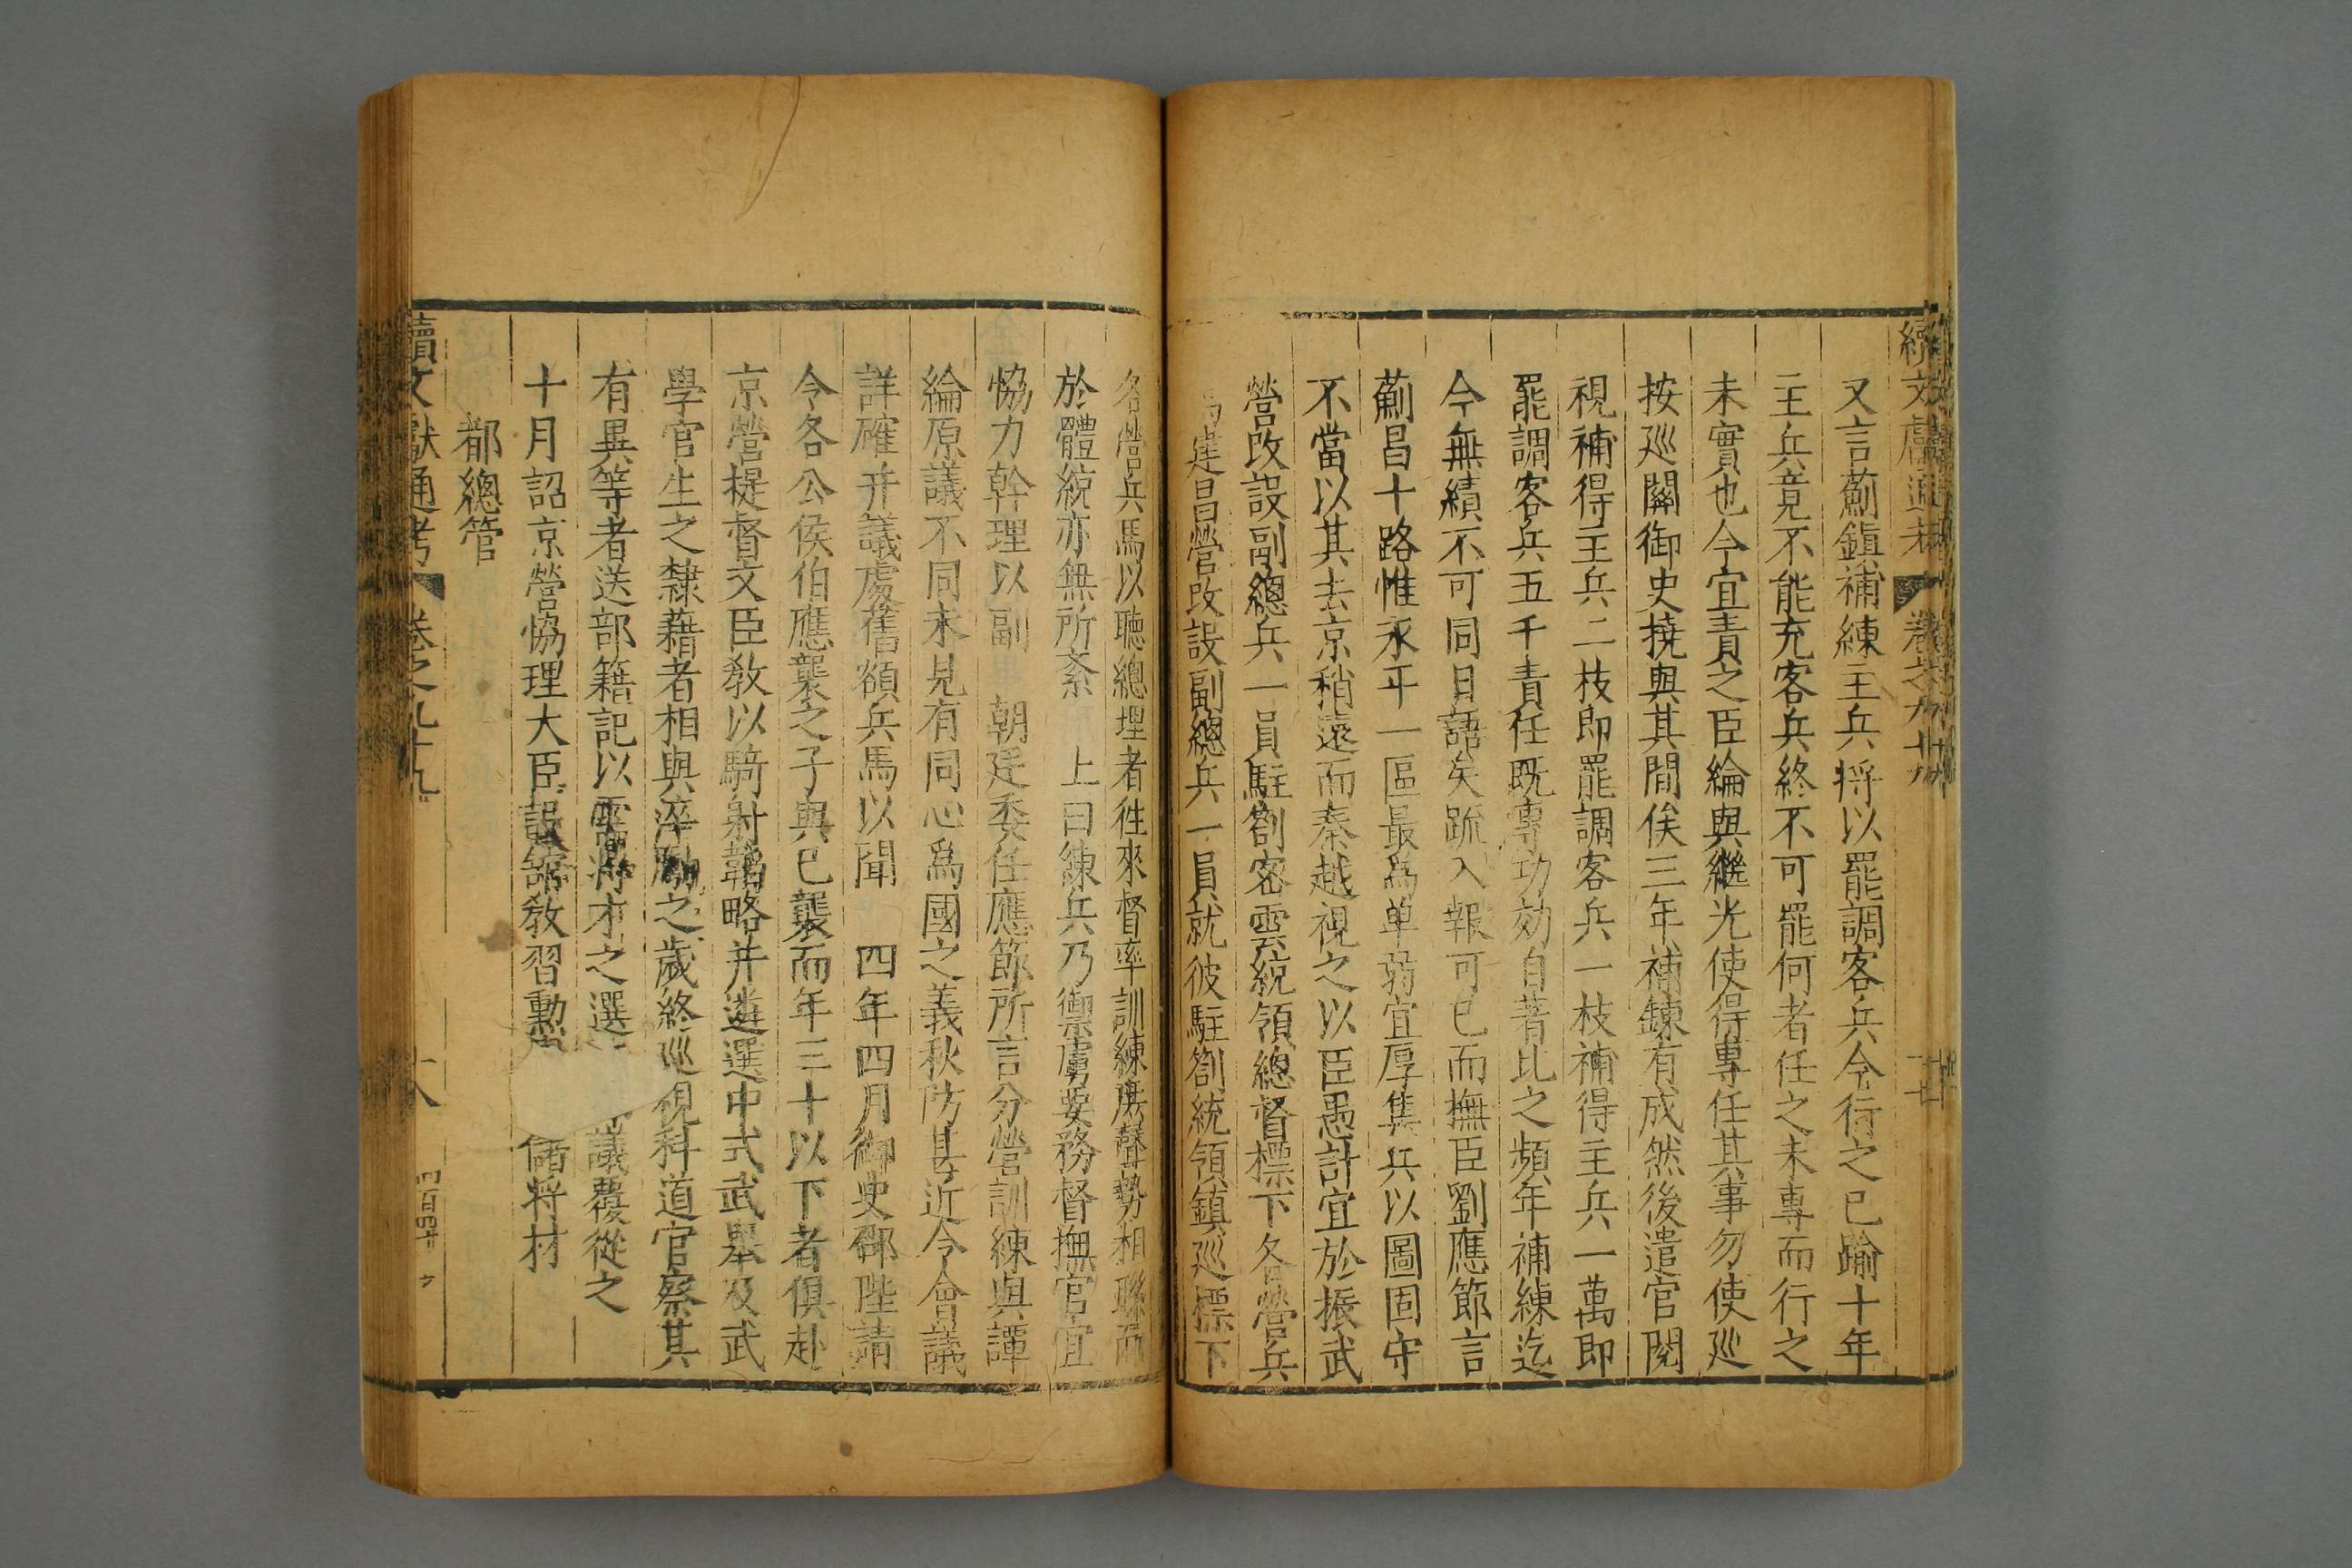 續文獻通考 卷之九十九
又言薊鎮補練主兵將以罷調客兵令行之已踰十年
主兵竟不能充客兵終不可罷何者任之未專而行之
未實也今宜責之臣綸與繼光使得專任其事勿使廵
按廵關御史撓與其間俟三年補鍊有成然後遣官閱
視補得主兵二枝即罷調客兵一枝補得主兵一萬即
罷調客兵五千責任既專功効自著比之頻年補練迄
今無績不可同日語矣䟽入報可已而撫臣劉應節言
薊昌十路惟永平一區最爲单弱宜厚集兵以圖固守
不當以其去京稍遠而秦越視之以臣愚計宜於振武
營改設副總兵一員駐劄密雲統領總督標下各營兵
馬建昌營改設副總兵一員就彼駐劄統領鎮廵標下
各營兵馬以聽總理者徃來督率訓練庶聲勢相聯而
於體統亦無所紊 上曰練兵乃禦虜要務督撫官宜
恊力幹理以副 朝廷委任應節所言分營訓練與譚
綸原議不同未見有同心爲國之義秋防甚近令會議
詳確并議處舊額兵馬以聞 四年四月御史郜陞請
令各公侯伯應襲之子與已襲而年三十以下者俱赴
京營提督文臣教以騎射韜略并遴選中式武舉及武
學官生之隸藉者相與淬勵之歲終廵視科道官察其
有異等者送部籍記以需將才之選 議覆從之
十月詔京營恊理大臣設舘教習勲 儲將材
都總管
續文獻通考 卷之九十九 十八